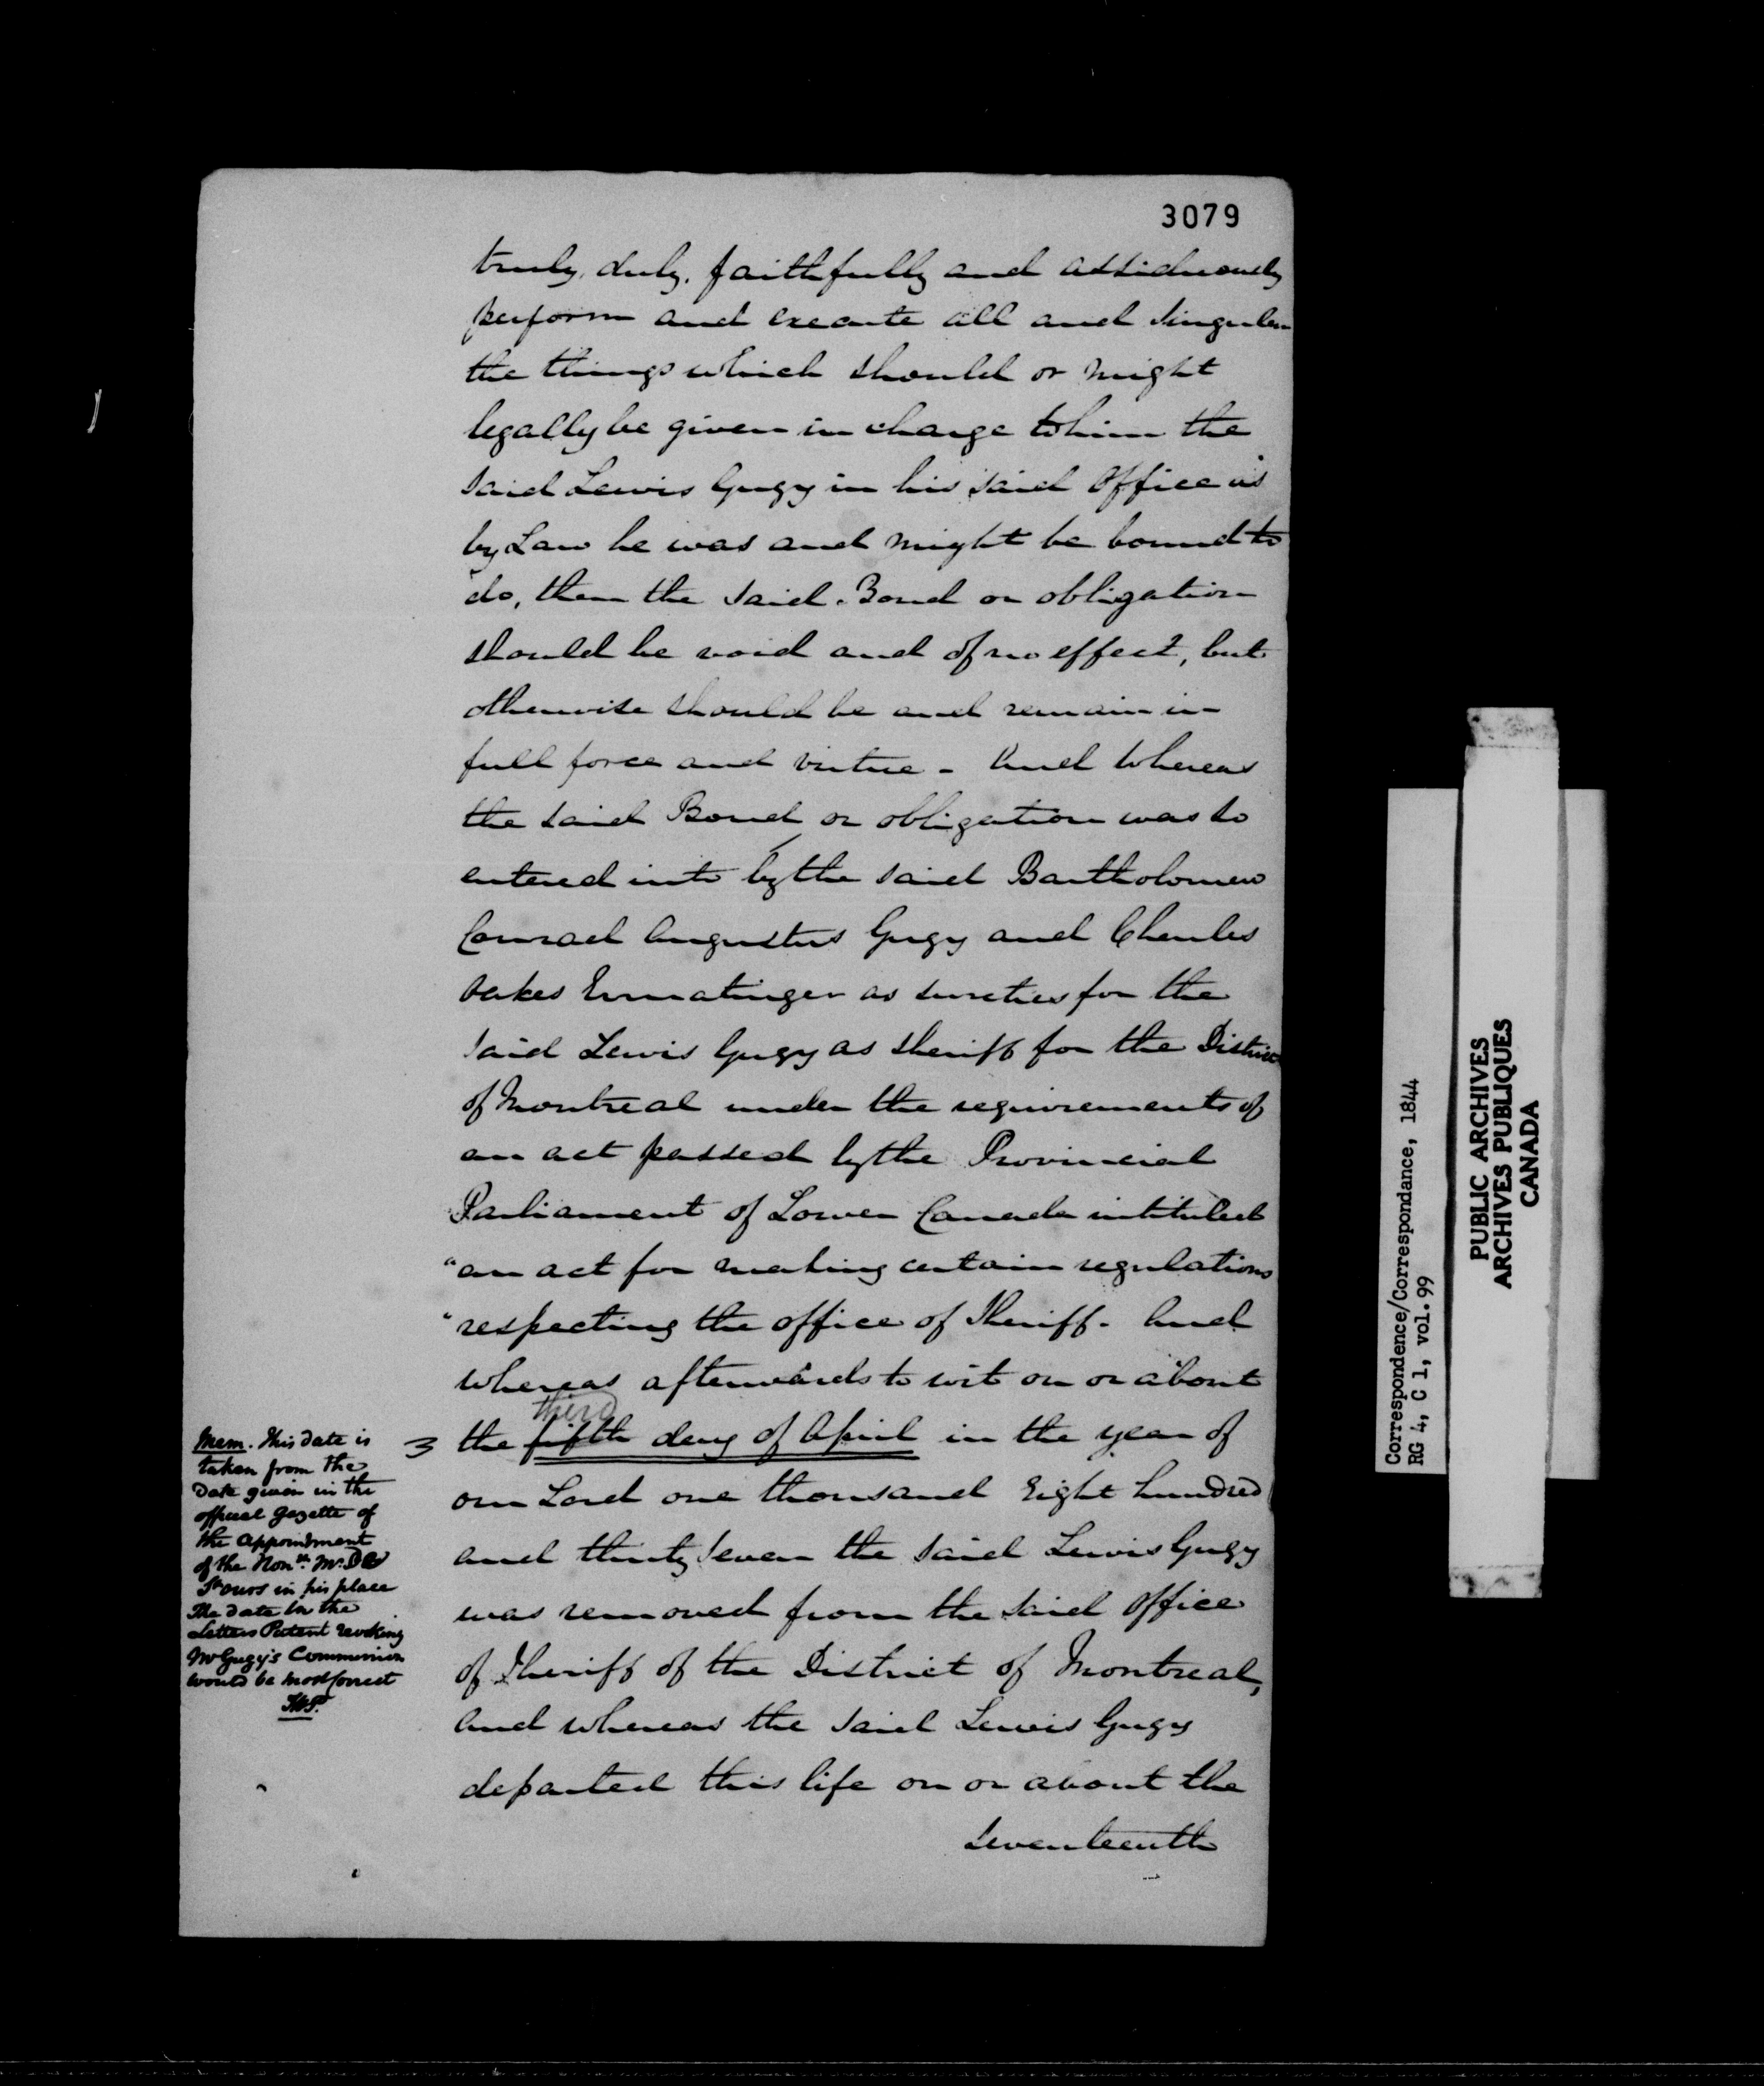 3079
truly, duly, faithfully and assiduously
perform and execute all and singular
the things which should or might
legally be given in charge to him the
said Lewis Gugy in his said Office as
by Law he was and might be bound to
do, then the said Bond or obligation
should be void and of no effect, but
otherwise should be and remain in
full force and virtue - And whereas
the said Bond or obligation was so
entered into by the said Bartholomew
Conrad Augustus Gugy and Charles
Oakes Ermatinger as sureties for the
said Lewis Gugy as Sheriff for the District
of Montreal under the requirements of
an act passed by the Provincial
Parliament of Lower Canada intituled
"an act for making certain regulations
"respecting the office of Sheriff. And
whereas afterwards to wit on or about
third
3 the fifth day of April in the year of
our Lord one thousand Eight hundred
and thirty seven the said Lewis Gugy
was removed from the said Office
of Sheriff of the District of Montreal,
And whereas the said Lewis Gugy
departed this life on or about the
seventeenth
Mem. This date is
taken from the
date given in the
official Gazette of
the appointment
of the Honble. Mr. De
St ours in his place
The date in the
Letters Patent revoking
Mr Gugy's Commission
would be most correct
Correspondence/Correspondance, 1844
RG 4, C 1, vol. 99
PUBLIC ARCHIVES
ARCHIVES PUBLIQUES
CANADA